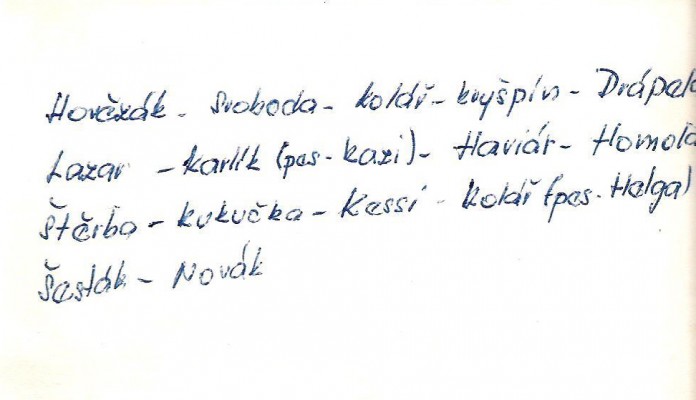 Hovězák - Svoboda - Kolář - Kryšpín - Drápal
Lazar - Karlík (pes - Kazi) - Haviár - Homola
Štěrba - Kukučka - Kessi - Kolář (pes - Helga)
Šesták - Novák